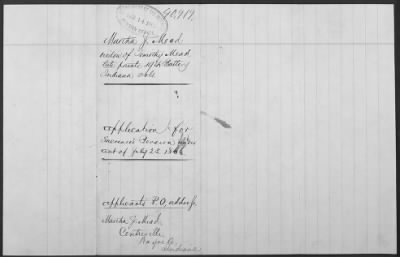 40,919.
Martha J. Mead
widow of Timothy Mead
late private 19th Battery
Indiana Vols.
Application for
Increased Pension under
act of July 25 1866
Applicants P.O. address
Martha J. Mead,
Centreville
Wayne Co.
Indiana